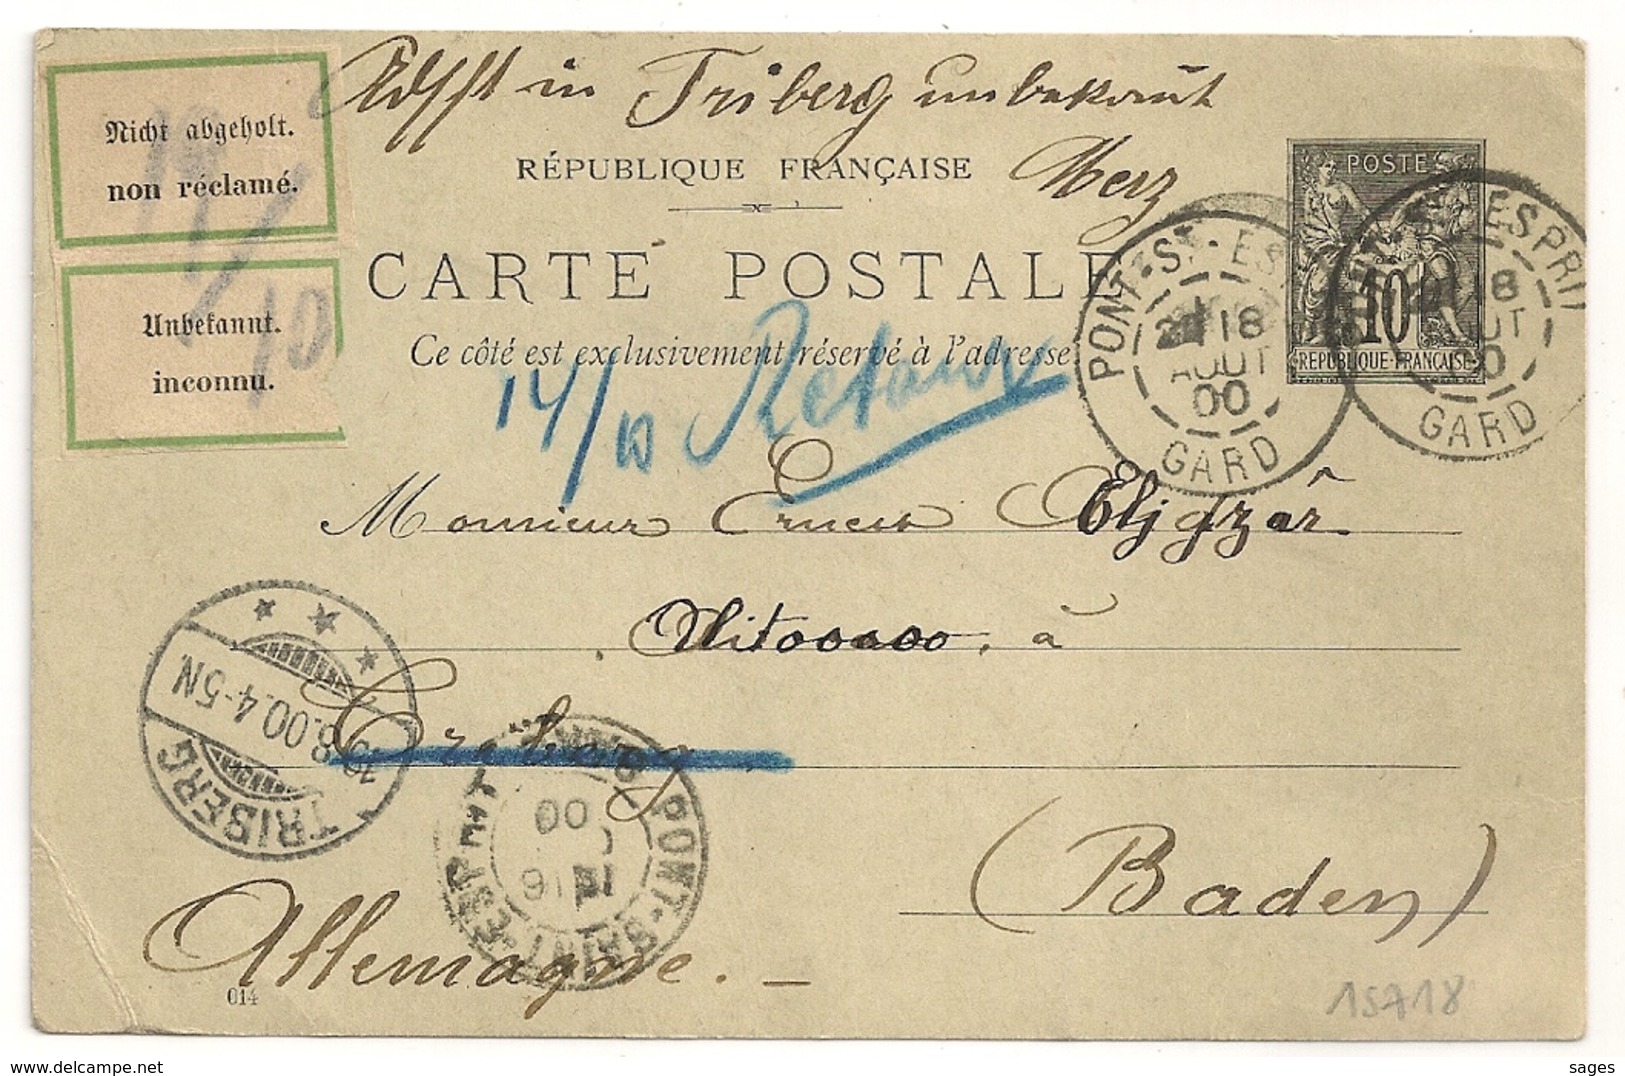 in Triberg unbekannt
Merz
Nicht abgeholt.
non réclamé.
Unbekannt.
inconnu.
RÉPUBLIQUE FRANÇAISE
CARTE POSTALE
Ce côté est exclusivement réservé à l'adresse
14/10 Retour
POSTE
10
REPUBLIQUE FRANÇAISE
PONT-ST-ESPRIT
18
AOUT
00
GARD
PONT-ST-ESPRIT
GARD
Monsieur Ernest
à
TRIBERG
19.8.00.4-5N
PONT-SAINT-ESPRIT
00
16
(Baden)
Allemagne.
014
15718
https://www.delcampe.net
sages